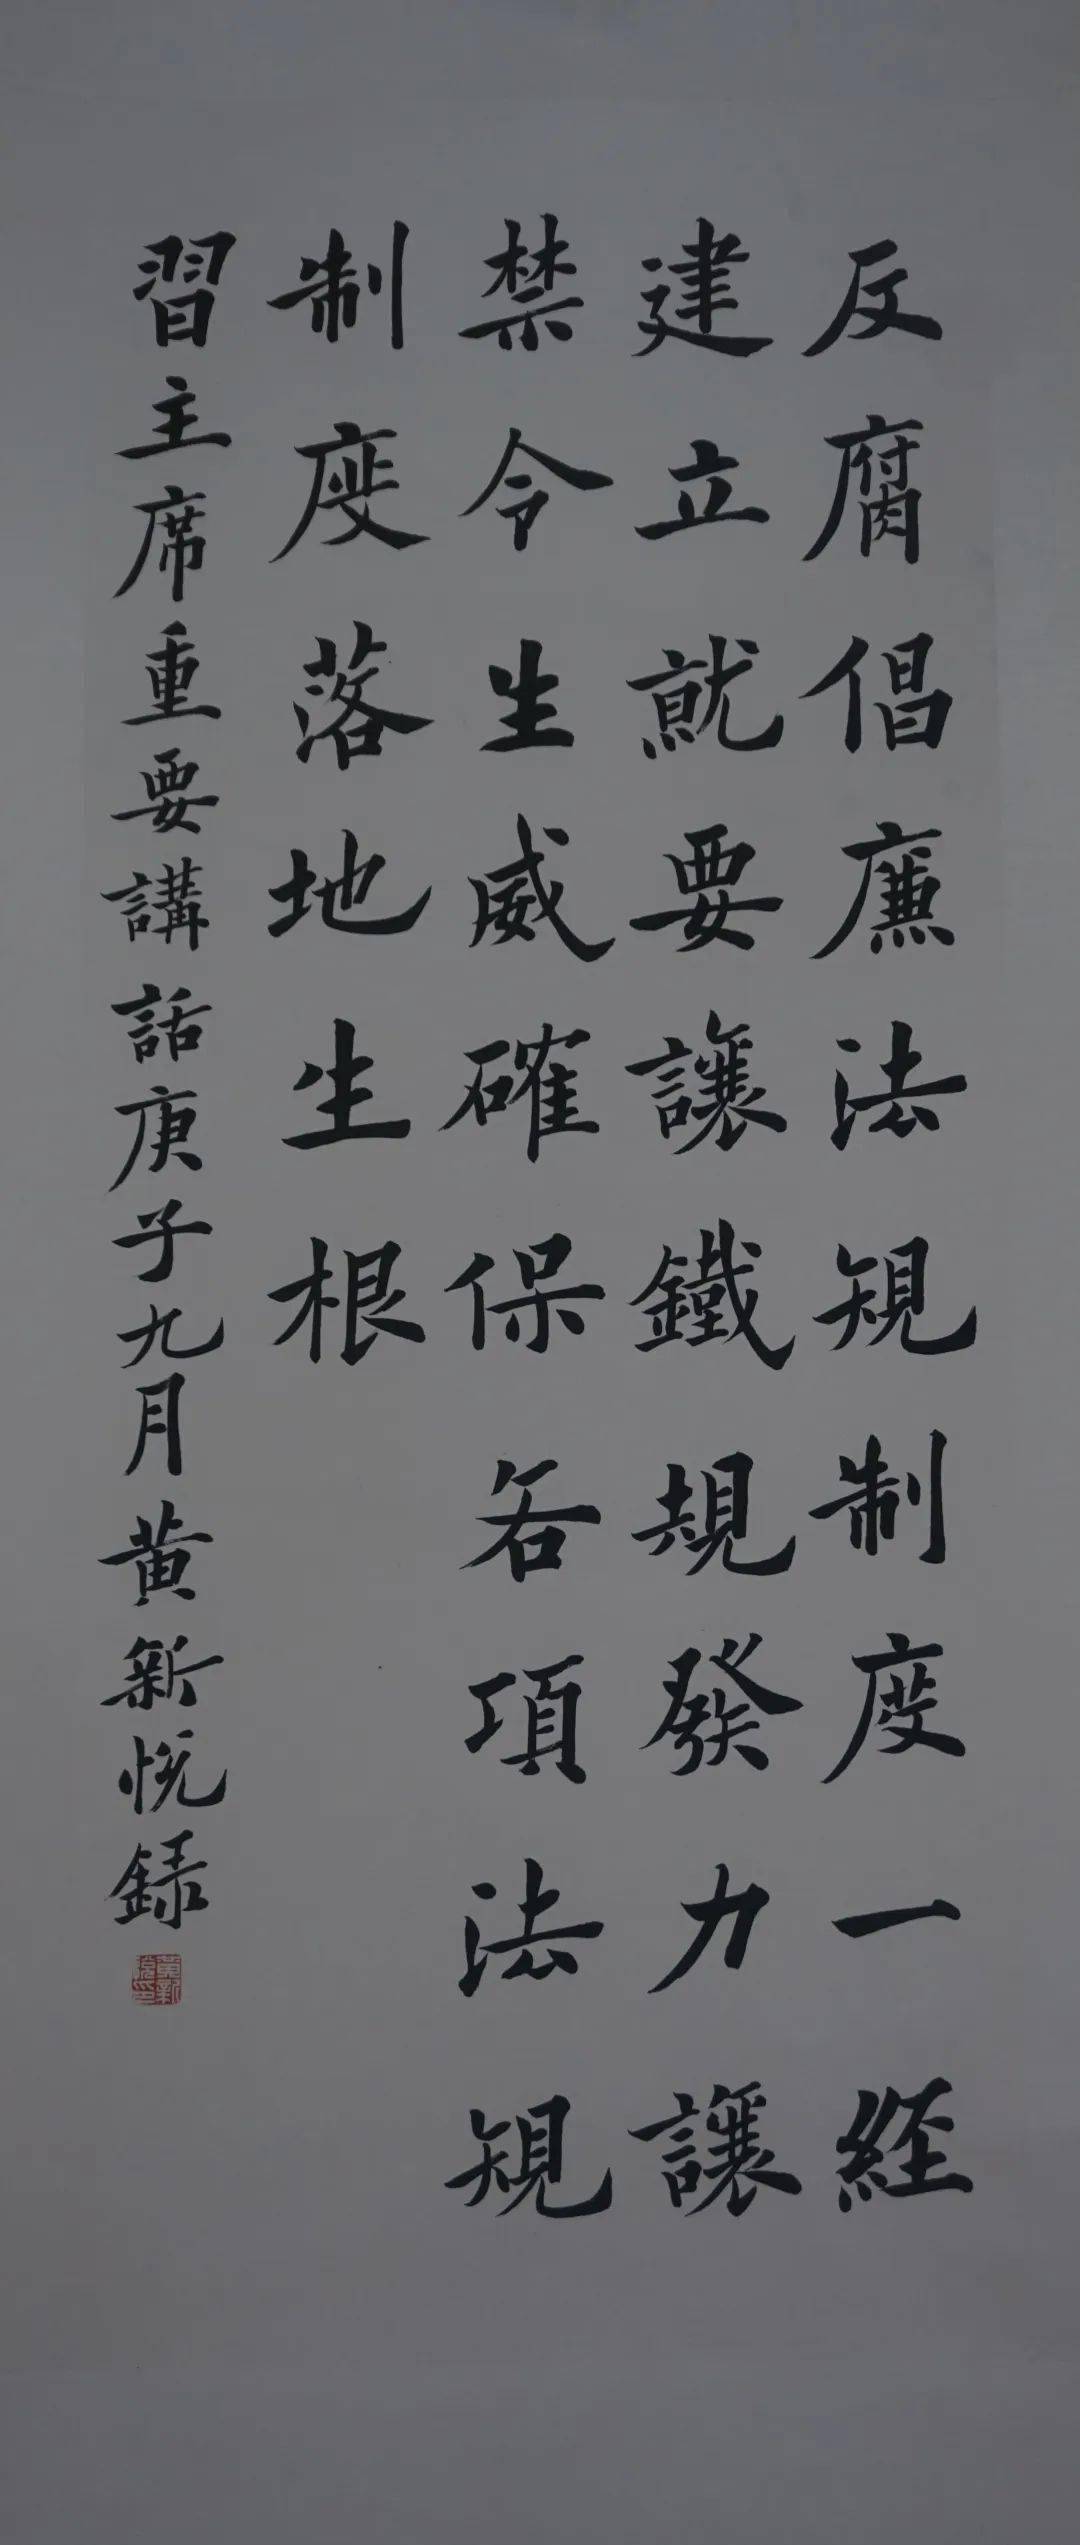 反腐倡廉法規制度一經
建立就要讓鐵規發力讓
禁令生威確保各項法規
制度落地生根
習主席重要講話庚子九月黃新悅錄
黃新悅印